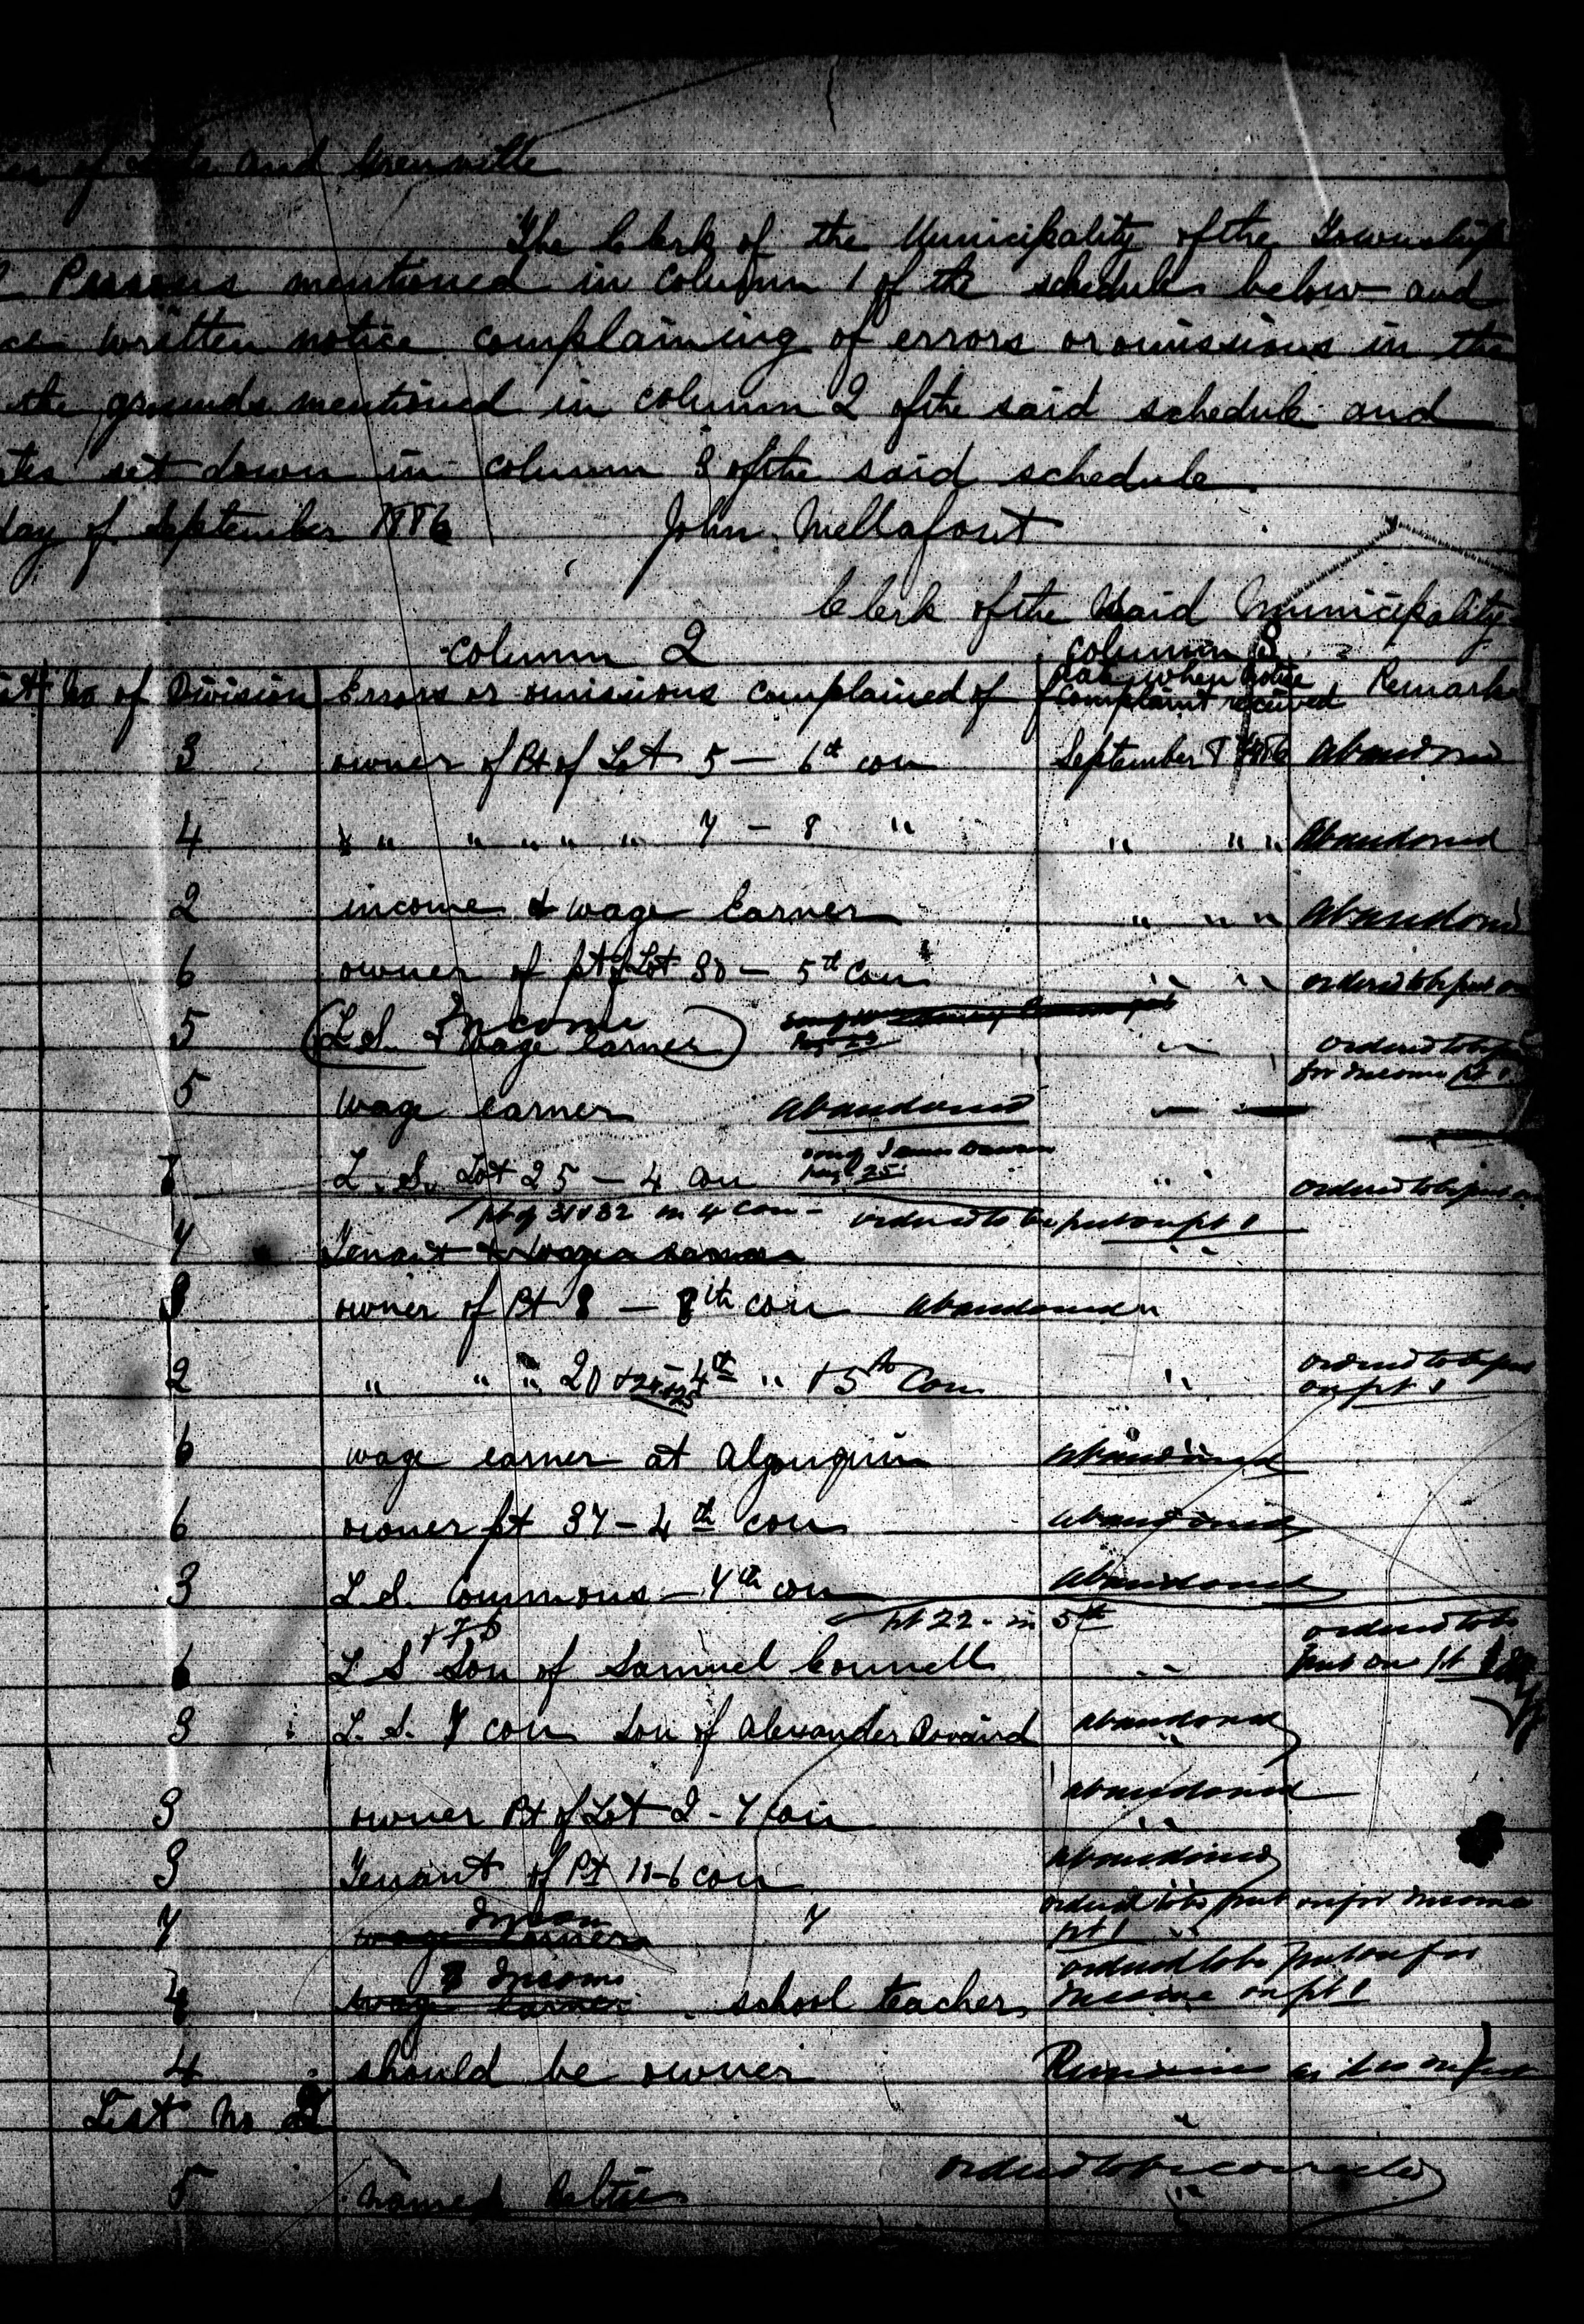 of Leeds and Grenville
The Clerk of the Municipality of the Township
Persons mentioned in column 1 of the schedule below and
written notice complaining of errors or omissions in the
the grounds mentioned in column 2 of the said schedule and
set down in column 3 of the said schedule
day of September 1886 John
Clerk of the Said Municipality
column 2 column 3
No of Division Errors or omissions complained of Date when notice Remarks
complaint received
3 owner of Pt of Lot 5 - 6th con September 8 1886 Abandoned
4 " " " " " " 7 - 8 " " " " Abandoned
2 income & wage earner " " " Abandoned
6 owner of pt of Lot 30 - 5th Con " " ordered to be put on
Income
5 (L.S. & wage earner) " ordered to be put
for Income pt 1
5 wage earner abandoned
son of James
7 L. S. Lot 25 - 4 con " ordered to be put on
pt of 31 & 32 in 4 con - ordered to be put on pt 1
7 Tenant & wage earner "
8 owner of Pt 8 - 8th con abandoned "
2 " " " 20 & 24 & 25 - 4th " & 5th Con " ordered to be put
on pt 1
6 wage earner at Algonquin abandoned
6 owner pt 37 - 4th con abandoned
3 L.S. Commons - 7th con abandoned
pt 22 - in 5th ordered to be
6 L S Son of Samuel Connell " put on pt 1
3 L. S. 7 con Son of Alexander abandoned
3 owner Pt of Lot 2 - 7 con abandoned
3 Tenant of Pt 11-6 con abandoned
Income ordered to be put on for Income
7 wage earner 7 pt 1
Income ordered to be put on for
4 wage earner school teacher Income on pt 1
4 should be owner Remains as
List No 2
ordered to be corrected
5 named